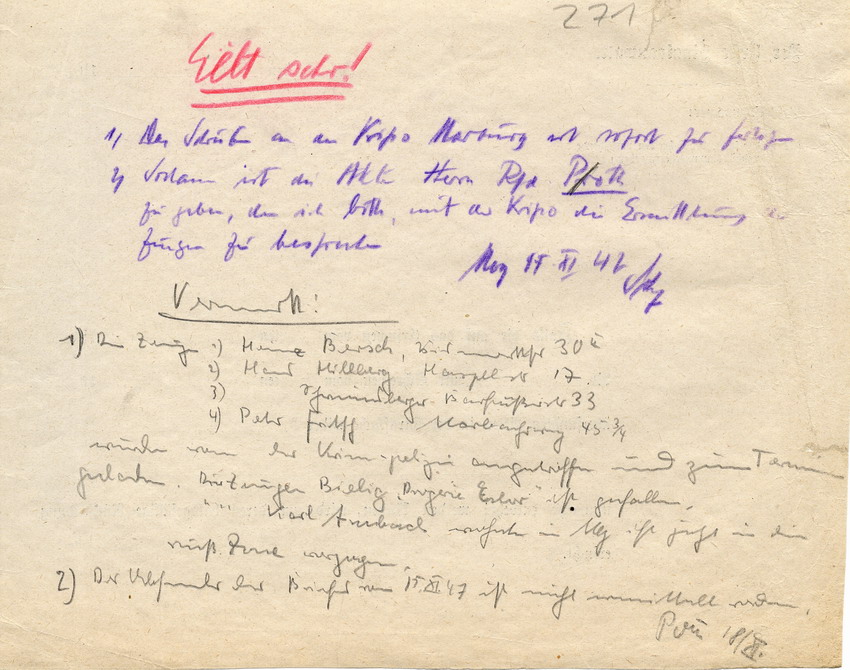 271
Eilt sehr!
1) Das Schreiben an die Kripo Marburg ist sofort zu fertigen
2) Sodann ist die Akte Herrn Rfd Proth
zu geben, den ich bitte, mit der Kripo die Ermittlung der
Zeugen zu besprechen
Mbg 15 XI 47
Vermerk!
1) Die Zeugen 1) Heinz Bersch, 30
2) Hans Hillberg Haspelstr 17.
3) Barfüßerstr 33
4) Peter Fritsch Marbacherweg 45 3/4
wurden von der Krim-polizei angetroffen und zum Termin
geladen. Die Zeugen Bielig "Drogerie " ist gefallen,
" " Karl Ambach wohnte in Mbg ist jetzt in die
russ. Zone verzogen.
2) Der Absender des Briefes vom 15.XI.47 ist nicht ermittelt worden.
18/XI.